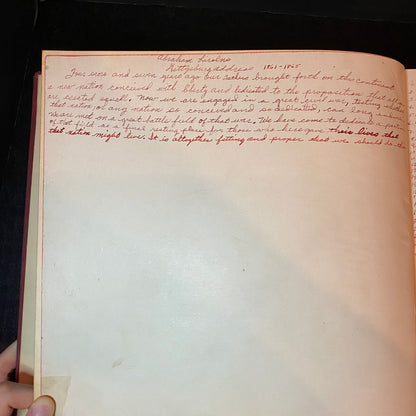 Abraham Lincolns
Gettysburg address 1861-1865
Four score and seven years ago our fathers brought forth on this continent
a new nation conceived with liberty and dedicated to the proposition that all
are created equal. Now we are engaged in a great civil war, testing whether
that nation or any nation so conceived and so dedicated, can long endure
We are met on a great battle field of that war. We have come to dedicate a
of that field as a final resting place for those who here gave their lives that
that nation might live. It is altogether fitting and proper that we should do this